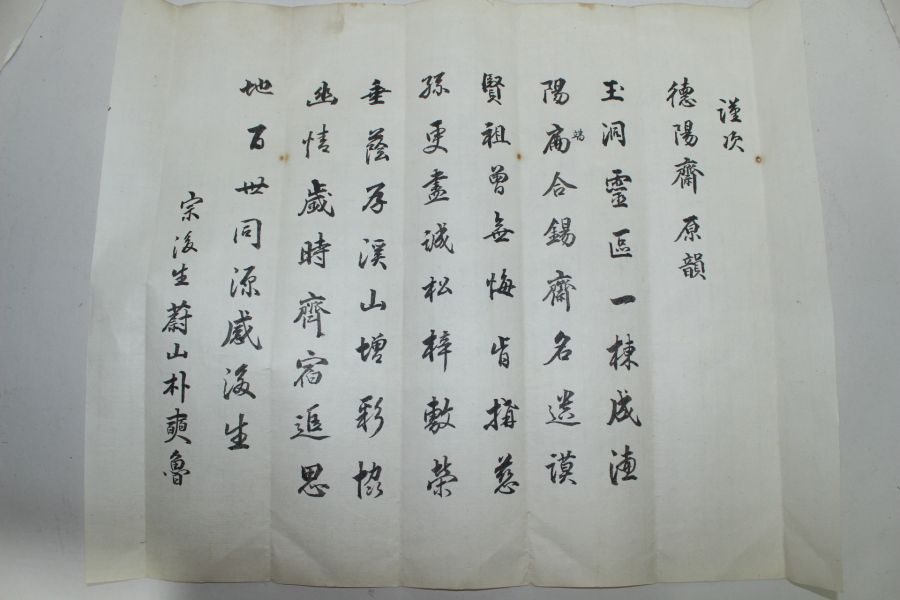 謹次
德陽齋原韻
玉洞靈區一棟成德
陽扁端合錫齋名遺謨
賢祖曾無悔肯搆慈
孫更盡誠松梓敷榮
垂蔭厚溪山增彩恊
幽情歲時齊宿追思
地百世同源感後生
宗後生蔚山朴奭魯